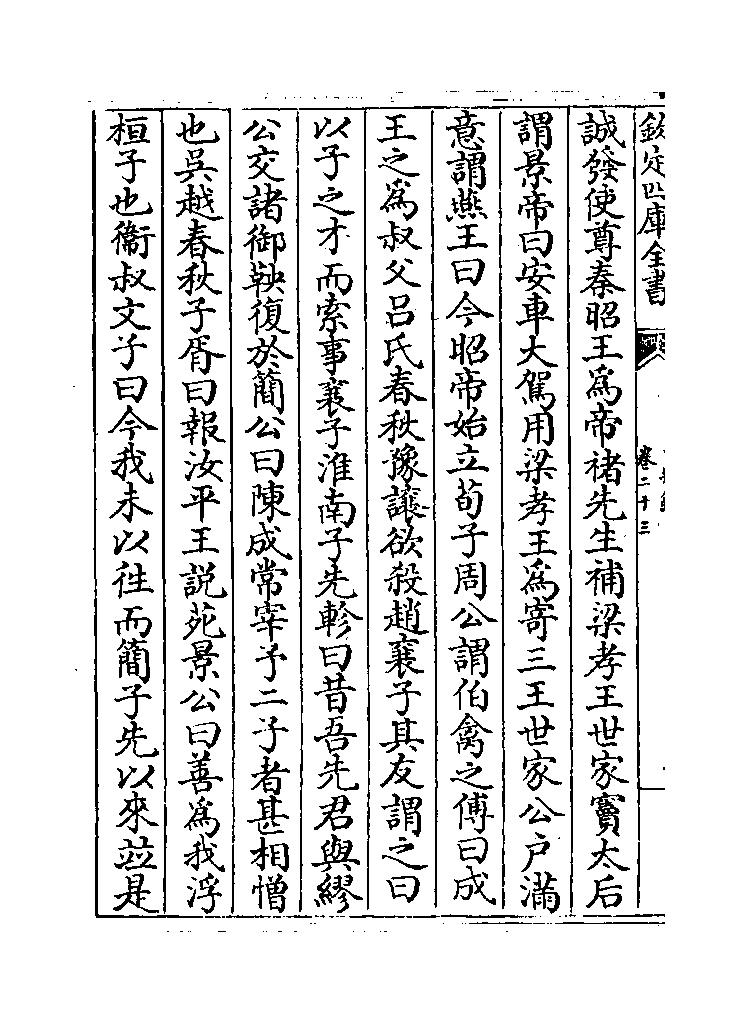 欽定四庫全書
卷二十三
誠發使尊秦昭王為帝禇先生補梁孝王世家竇太后
謂景帝曰安車大駕用梁孝王為寄三王世家公户滿
意謂燕王曰今昭帝始立荀子周公謂伯禽之傅曰成
王之為叔父吕氏春秋豫讓欲殺趙襄子其友謂之曰
以子之才而索事襄子淮南子先軫曰昔吾先君與繆
公交諸御鞅復於簡公曰陳成常宰予二子者甚相憎
也吳越春秋子胥曰報汝平王説苑景公曰善為我浮
桓子也衞叔文子曰今我未以徃而簡子先以來竝是